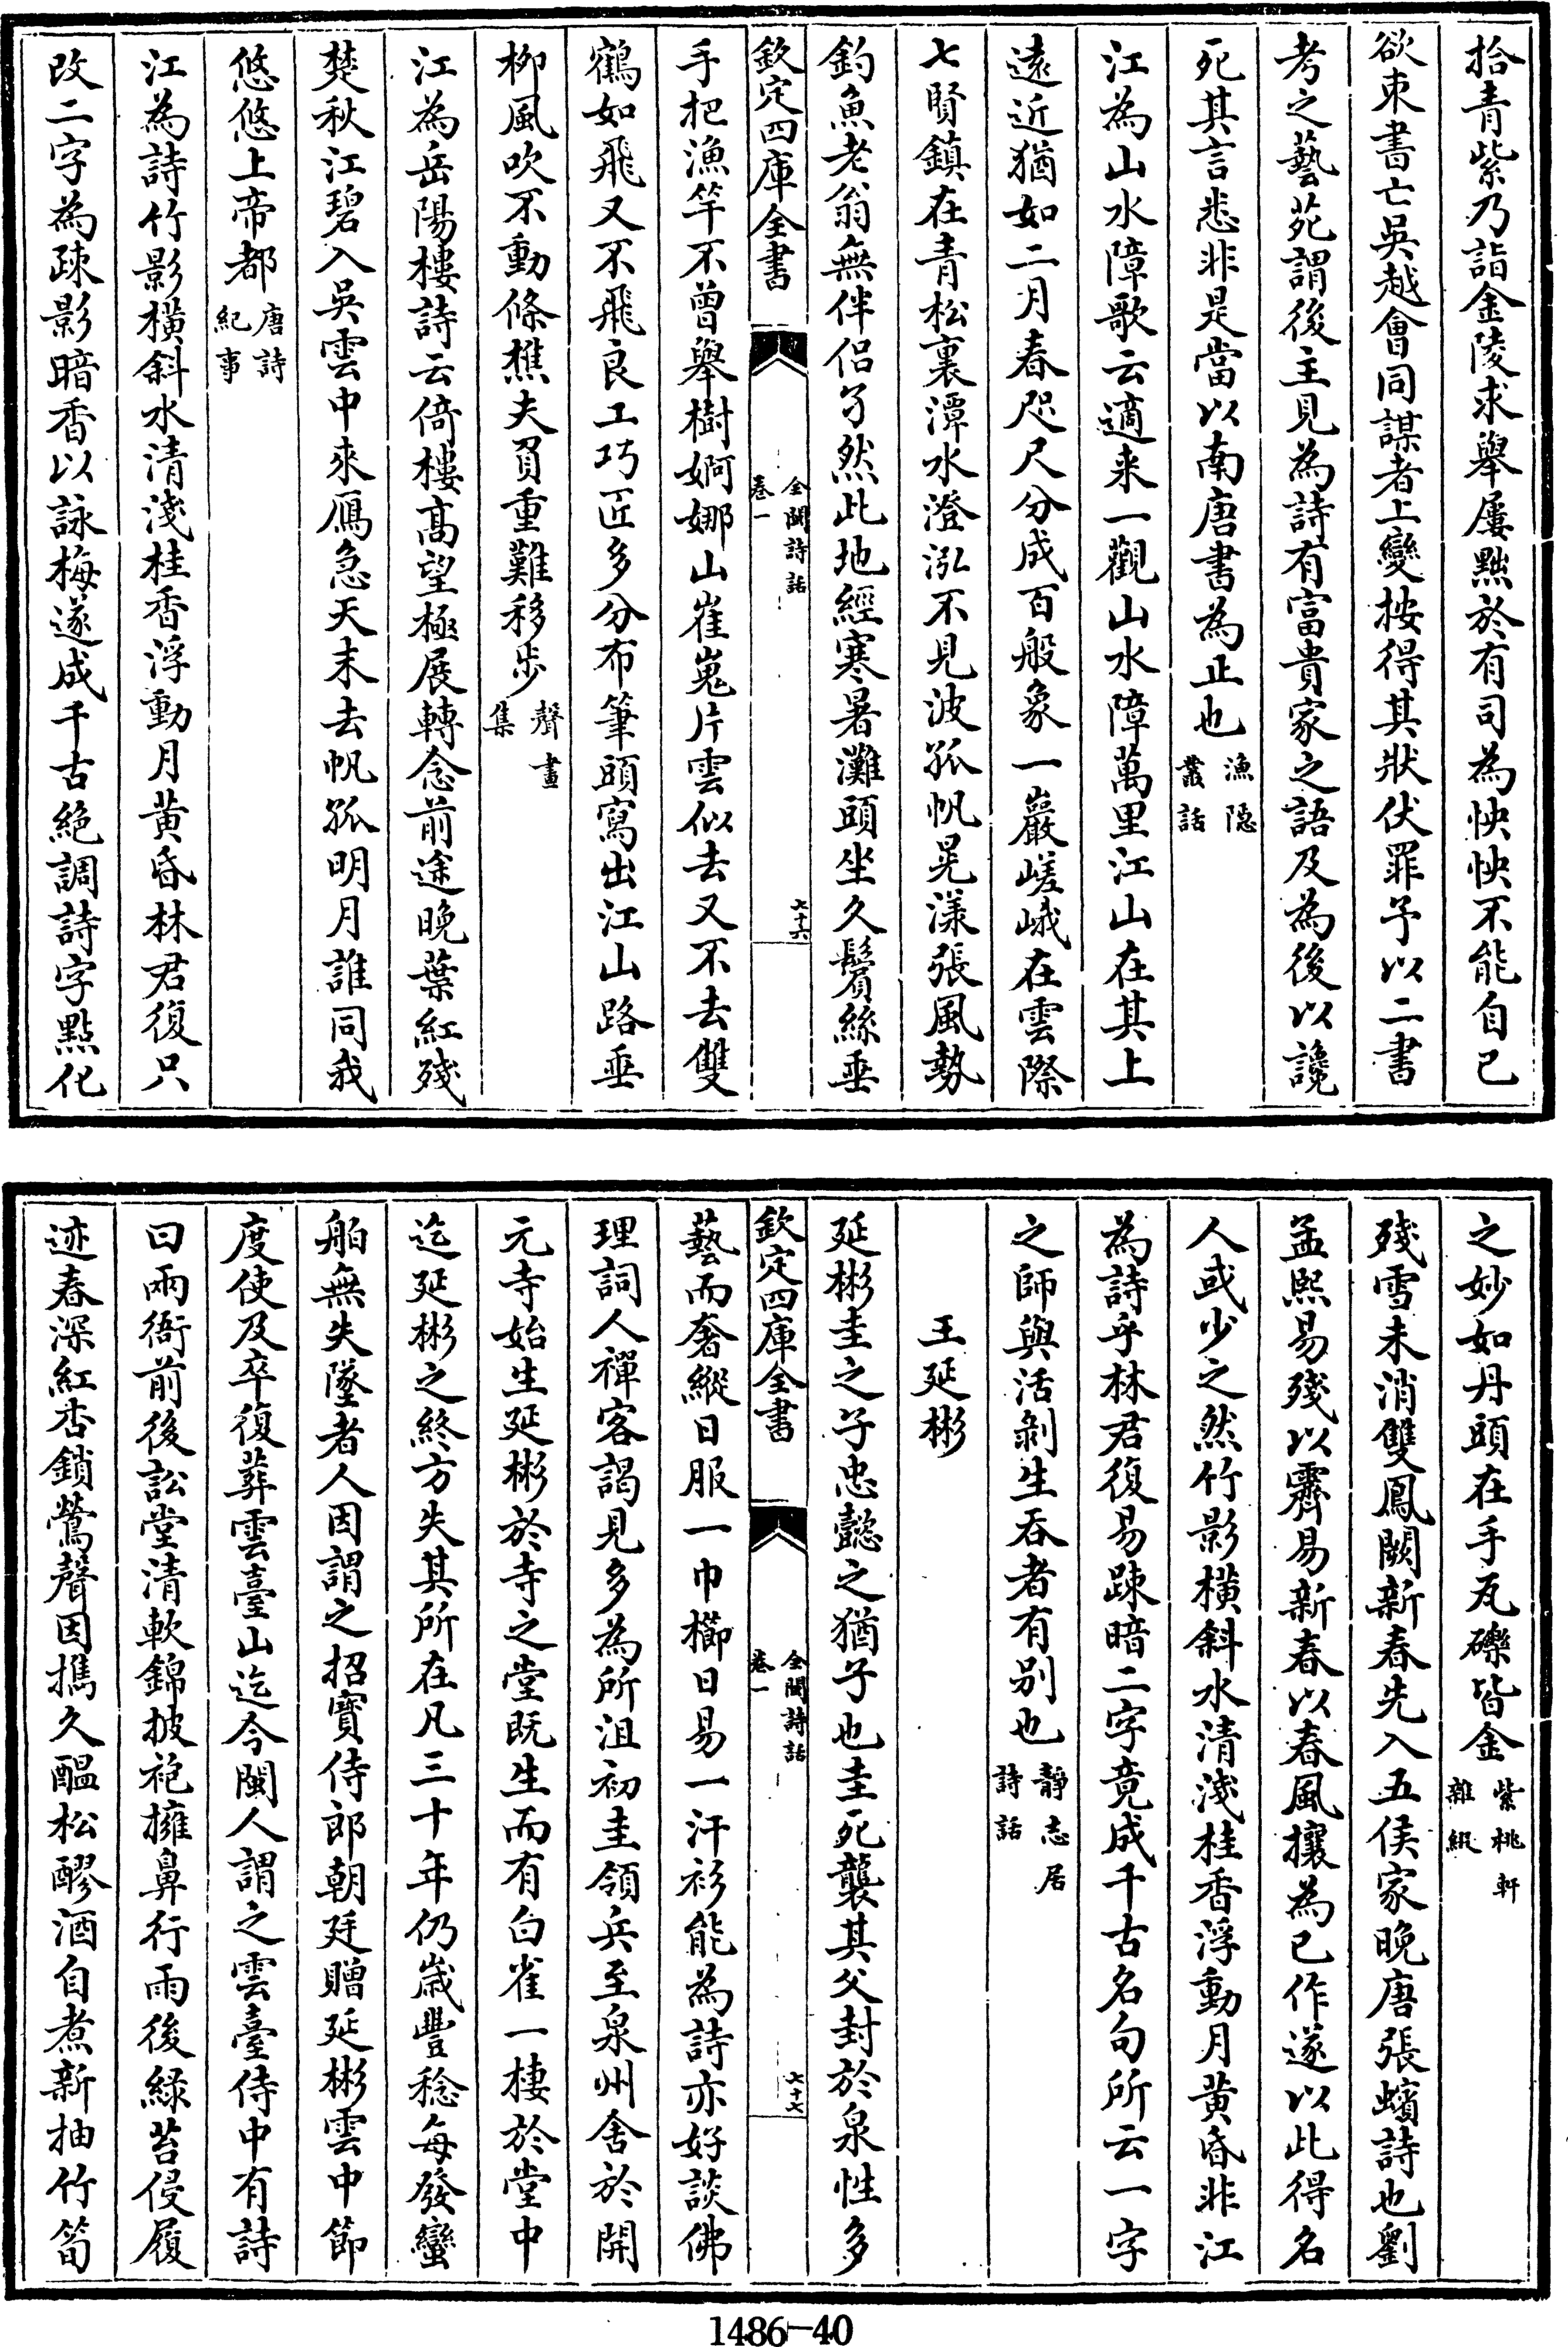 拾青紫乃詣金陵求舉屢黜於有司為怏怏不能自已
欲束書亡吳越會同謀者上變按得其狀伏罪予以二書
考之藝苑謂後主見為詩有富貴家之語及為後以讒
死其言悉非是當以南唐書為正也漁隱叢話
江為山水障歌云適来一觀山水障萬里江山在其上
遠近猶如二月春咫尺分成百般象一巖嵯峨在雲際
七賢鎮在青松裏潭水澄泓不見波孤帆晃漾張風勢
釣魚老翁無伴侶兮然此地經寒暑灘頭坐久鬢絲垂
欽定四庫全書
全閩詩話
卷一
七十六
手把漁竿不曾舉樹婀娜山崔嵬片雲似去又不去雙
鶴如飛又不飛良工巧匠多分布筆頭寫出江山路垂
柳風吹不動條樵夫負重難移步聲畫集
江為岳陽樓詩云倚樓高望極展轉念前途晚葉紅殘
楚秋江碧入吳雲中來鴈急天末去帆孤明月誰同我
悠悠上帝都唐詩紀事
江為詩竹影橫斜水清淺桂香浮動月黄昏林君復只
改二字為疎影暗香以詠梅遂成千古絶調詩字點化
之妙如丹頭在手瓦礫皆金紫桃軒雜綴
殘雪未消雙鳳闕新春先入五侯家晚唐張蠙詩也劉
孟熙易殘以霽易新春以春風攘為已作遂以此得名
人或少之然竹影橫斜水清淺桂香浮動月黄昏非江
為詩乎林君復易疎暗二字竟成千古名句所云一字
之師與活剝生吞者有别也静志居詩話
王延彬
延彬圭之子忠懿之猶子也圭死襲其父封於泉性多
欽定四庫全書
全閩詩話
卷一
七十七
藝而奢縱日服一巾櫛日易一汗衫能為詩亦好談佛
理詞人禪客謁見多為所沮初圭領兵至泉州舍於開
元寺始生延彬於寺之堂既生而有白雀一棲於堂中
迄延彬之終方失其所在凡三十年仍歲豐稔每發蠻
舶無失墜者人因謂之招寶侍郎朝廷贈延彬雲中節
度使及卒復葬雲臺山迄今閩人謂之雲臺侍中有詩
曰兩衙前後訟堂清軟錦披袍擁鼻行雨後緑苔侵履
迹春深紅杏鎖鶯聲因攜久醖松醪酒自煮新抽竹筍
1486-40